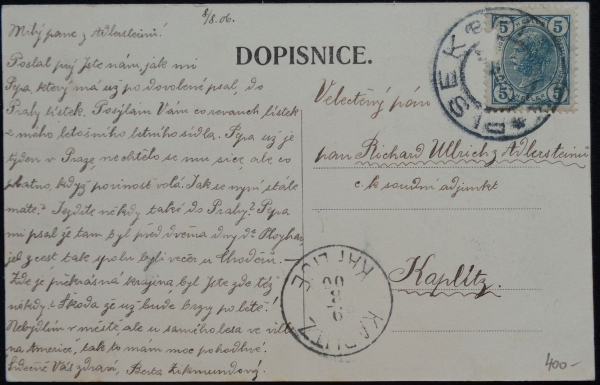 8/8. 06.
Milý pane z Adlersteinů!
Poslal prý jste nám, jak mi
Pepa, který má už po dovolené psal, do
Prahy lístek. Posýlám Vám co revanch lístek
z mého letošního letního sídla. Pepa už je
týden v Praze, nechtělo se mu sice, ale co
platno, když povinost volá. Jak se nyní stále
máte? Jezdíte někdy také do Prahy? Pepa
mi psal že tam byl před dvěma dny
jel z cest tak spolu byli večer u Choděrů. –
Zde je překrásná krajina, byl jste zde též
někdy. Škoda že už bude brzy po létě!
Nebydlím v městě, ale u samého lesa ve ville
"na Americe", tak to mám moc pohodlné.
Srdečně Vás zdraví, Berta Zikmundový.
DOPISNICE.
Velectěný pán
pan Richard Ullrich z Adlersteinů
c. k. soudní adjunkt
Kaplitz.
PISEK
5 5
5 5
KAPLITZ
KAPLICE
400–